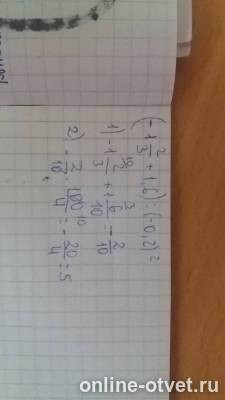 (-1 2/3 + 1,6) : (-0,2)²
1) -1 2/3 + 1 6/10 = -2/10
2) -2/10 : 100/4 = -20/4 = 5
online-otvet.ru